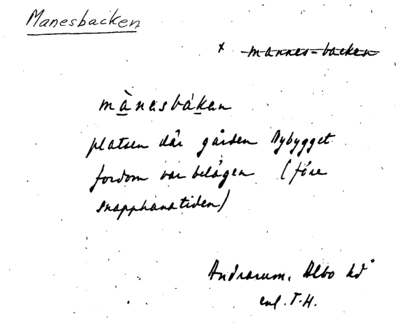 Manesbacken
x mannes-backen
mànesbáken
platsen där gården Nybygget
fordom var belägen (före
snapphanetiden)
Andrarum, Albo hd
enl. T.H.